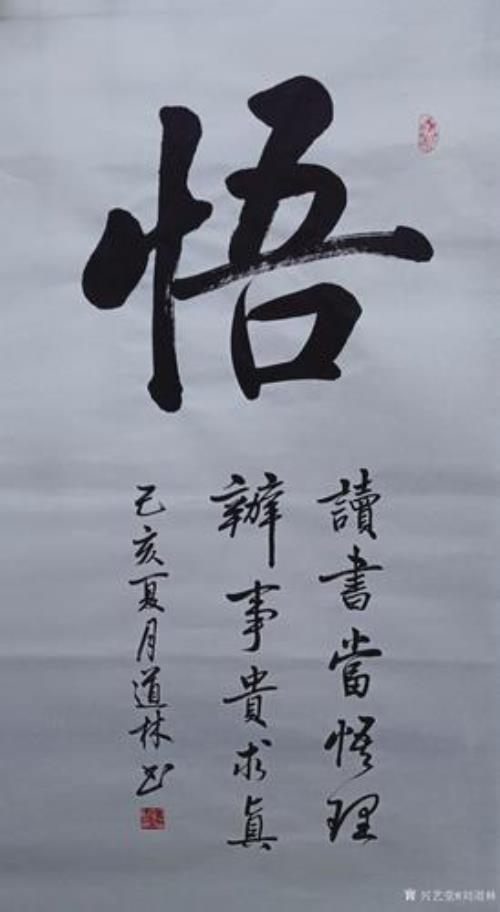 悟
讀書當悟理
辦事貴求真
己亥夏月道林书
兴艺堂#刘道林